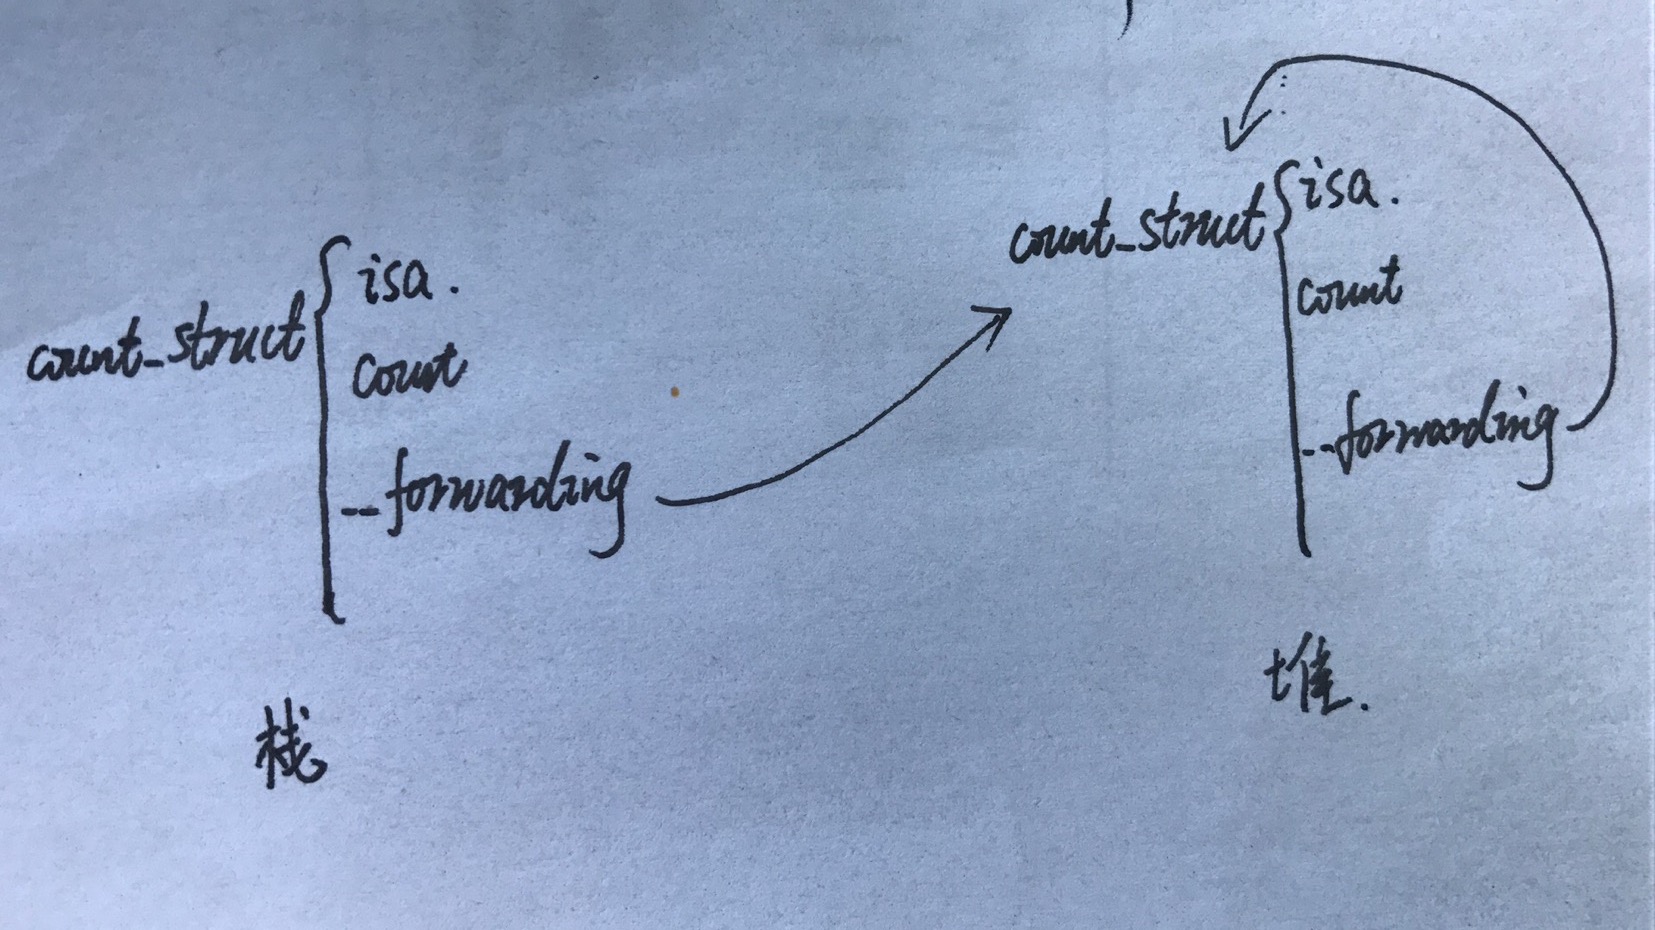 count_struct
isa.
count
__forwarding
栈
count_struct
isa.
count
__forwarding
堆.